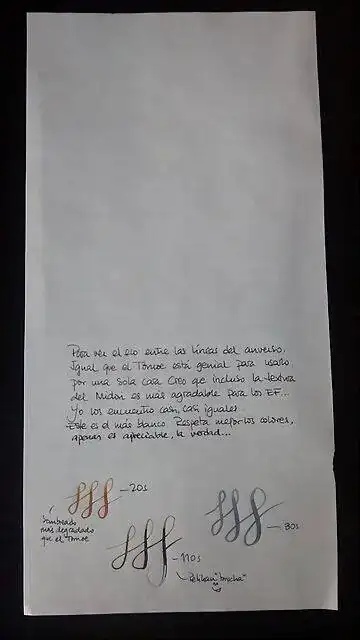 Para ver el eco entre las líneas del anverso.
Igual que el Tomoe está genial para usarlo
por una sola cara. Creo que incluso la textura
del Midori es más agradable para los EF...
Yo los encuentro casi, casi iguales.
Este es el más blanco. Respeta mejor los colores,
apenas es apreciable, la verdad...
— 20s
Sombreado
más degradado
que el Tomoe
— 30s
— 110s
Pelikan "brocha"